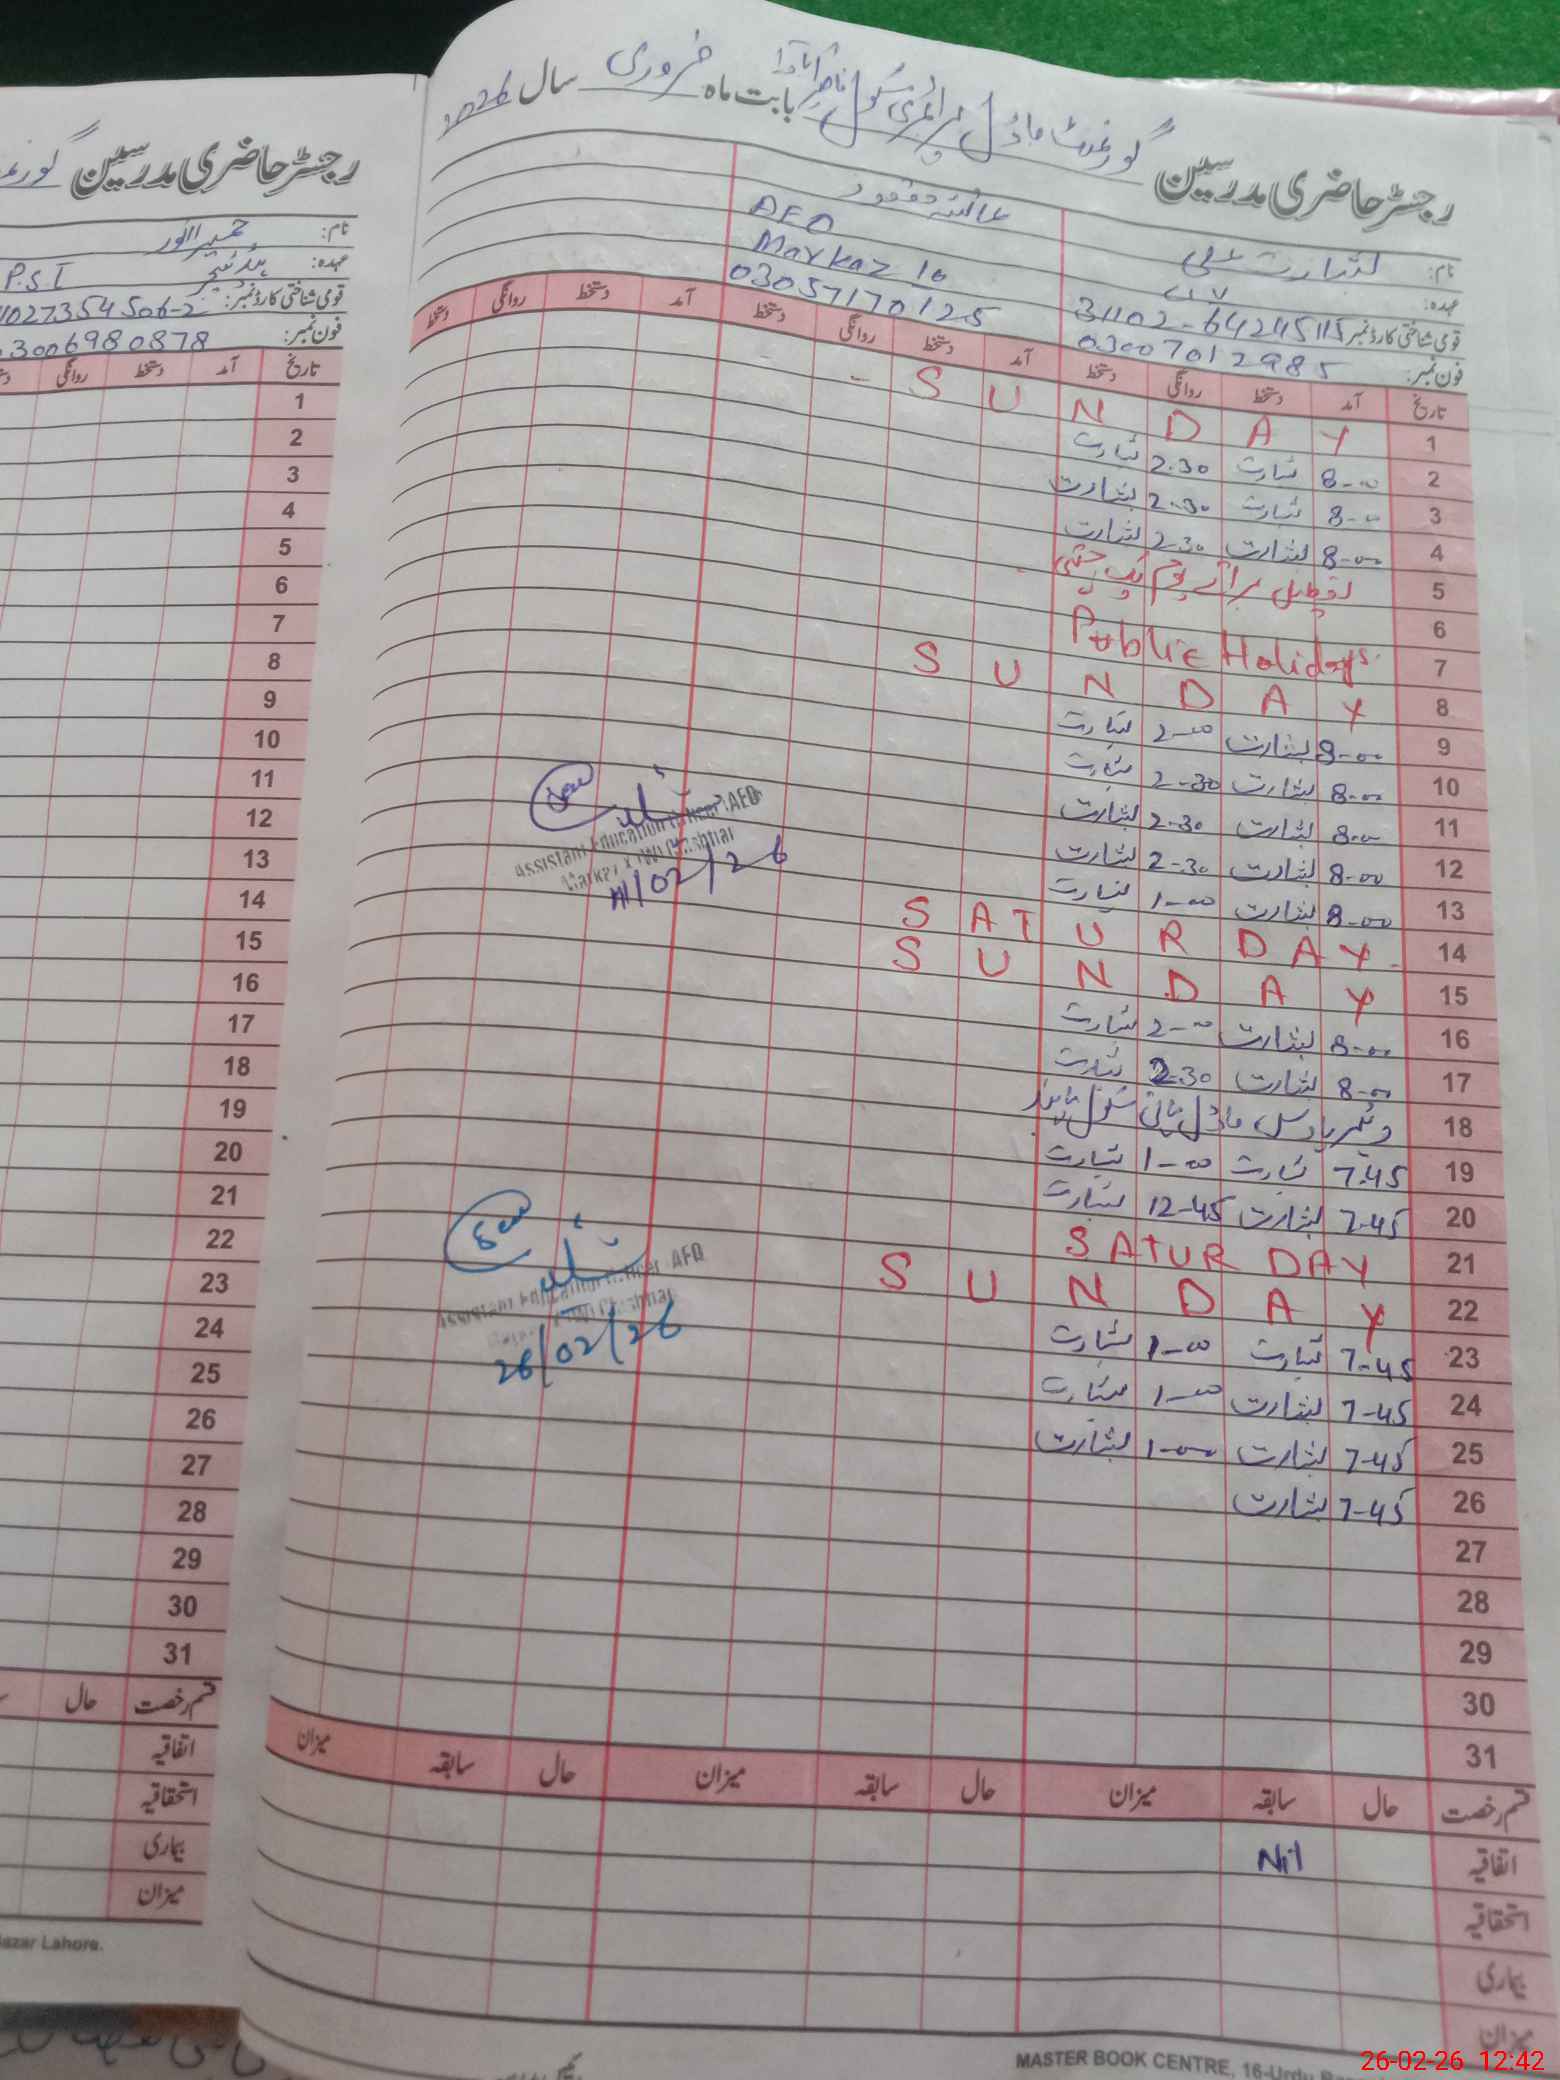 رجسٹر حاضری مدرسین گورنمنٹ ماڈل پرائمری سکول ناصر آباد بابت ماہ فروری سال 2026
نام: بشارت علی
عہدہ:
قومی شناختی کارڈ نمبر 31102-64245115
فون نمبر: 03007012985
AEO
Markaz 10
03057170125
تاریخ آمد دستخط روانگی دستخط آمد دستخط روانگی دستخط آمد دستخط روانگی دستخط
1 SUNDAY
2 8-00 بشارت 2.30 بشارت
3 8-00 بشارت 2-30 بشارت
4 8-00 بشارت 2-30 بشارت
5 تعطیل برائے یوم یکجہتی
6
7 Public Holidays
8 SUNDAY
9 8-00 بشارت 2-00 بشارت
10 8-00 بشارت 2-30 بشارت
11 8-00 بشارت 2-30 بشارت
12 8-00 بشارت 2-30 بشارت
13 8-00 بشارت 1-00 بشارت
14 SATURDAY
15 SUNDAY
16 8-00 بشارت 2-00 بشارت
17 8-00 بشارت 2-30 بشارت
18 ماڈل ہائی سکول
19 7.45 بشارت 1-00 بشارت
20 7-45 بشارت 12-45 بشارت
21 SATURDAY
22 SUNDAY
23 7-45 بشارت 1-00 بشارت
24 7-45 بشارت 1-00 بشارت
25 7-45 بشارت 1-00 بشارت
26 7-45 بشارت
27
28
29
30
31
Assistant Education Officer AEO
11/02/26
Assistant Education Officer AEO
26/02/26
قسم رخصت حال سابقہ میزان حال سابقہ میزان حال سابقہ میزان
اتفاقیہ Nil
استحقاقیہ
بیماری
میزان
MASTER BOOK CENTRE, 16-Urdu
رجسٹر حاضری مدرسین
نام: حمیرا انور
عہدہ: P.S.T
قومی شناختی کارڈ نمبر: 1027354506-2
فون نمبر: 03006980878
تاریخ آمد دستخط روانگی
1
2
3
4
5
6
7
8
9
10
11
12
13
14
15
16
17
18
19
20
21
22
23
24
25
26
27
28
29
30
31
قسم رخصت حال
اتفاقیہ
استحقاقیہ
بیماری
میزان
Bazar Lahore.
26-02-26 12:42